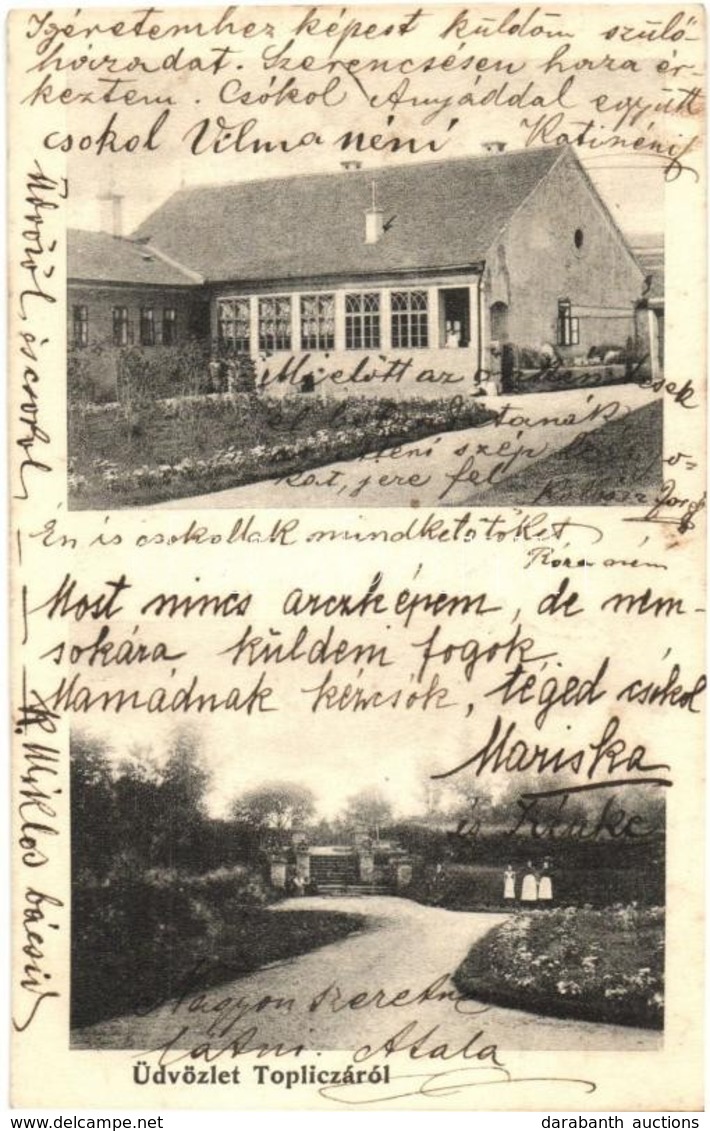 Igéretemhez képest küldöm szülő-
házadat. Szerencsésen haza ér-
keztem. Csókol Anyáddal együtt
csokol Vilma néni Katinéni
Üdvözöl, és csókol
K. Miklos bácsid
Mielőtt az
szép
kat, jere fel
Én is csokollak mindketőtöket
Róza néni
Most nincs arczképem, de nem-
sokára küldeni fogok
Mamádnak kézcsók, téged csókol
Mariska
és
Nagyon szeretne
látni. Atala
Üdvözlet Topliczáról
darabanth auctions